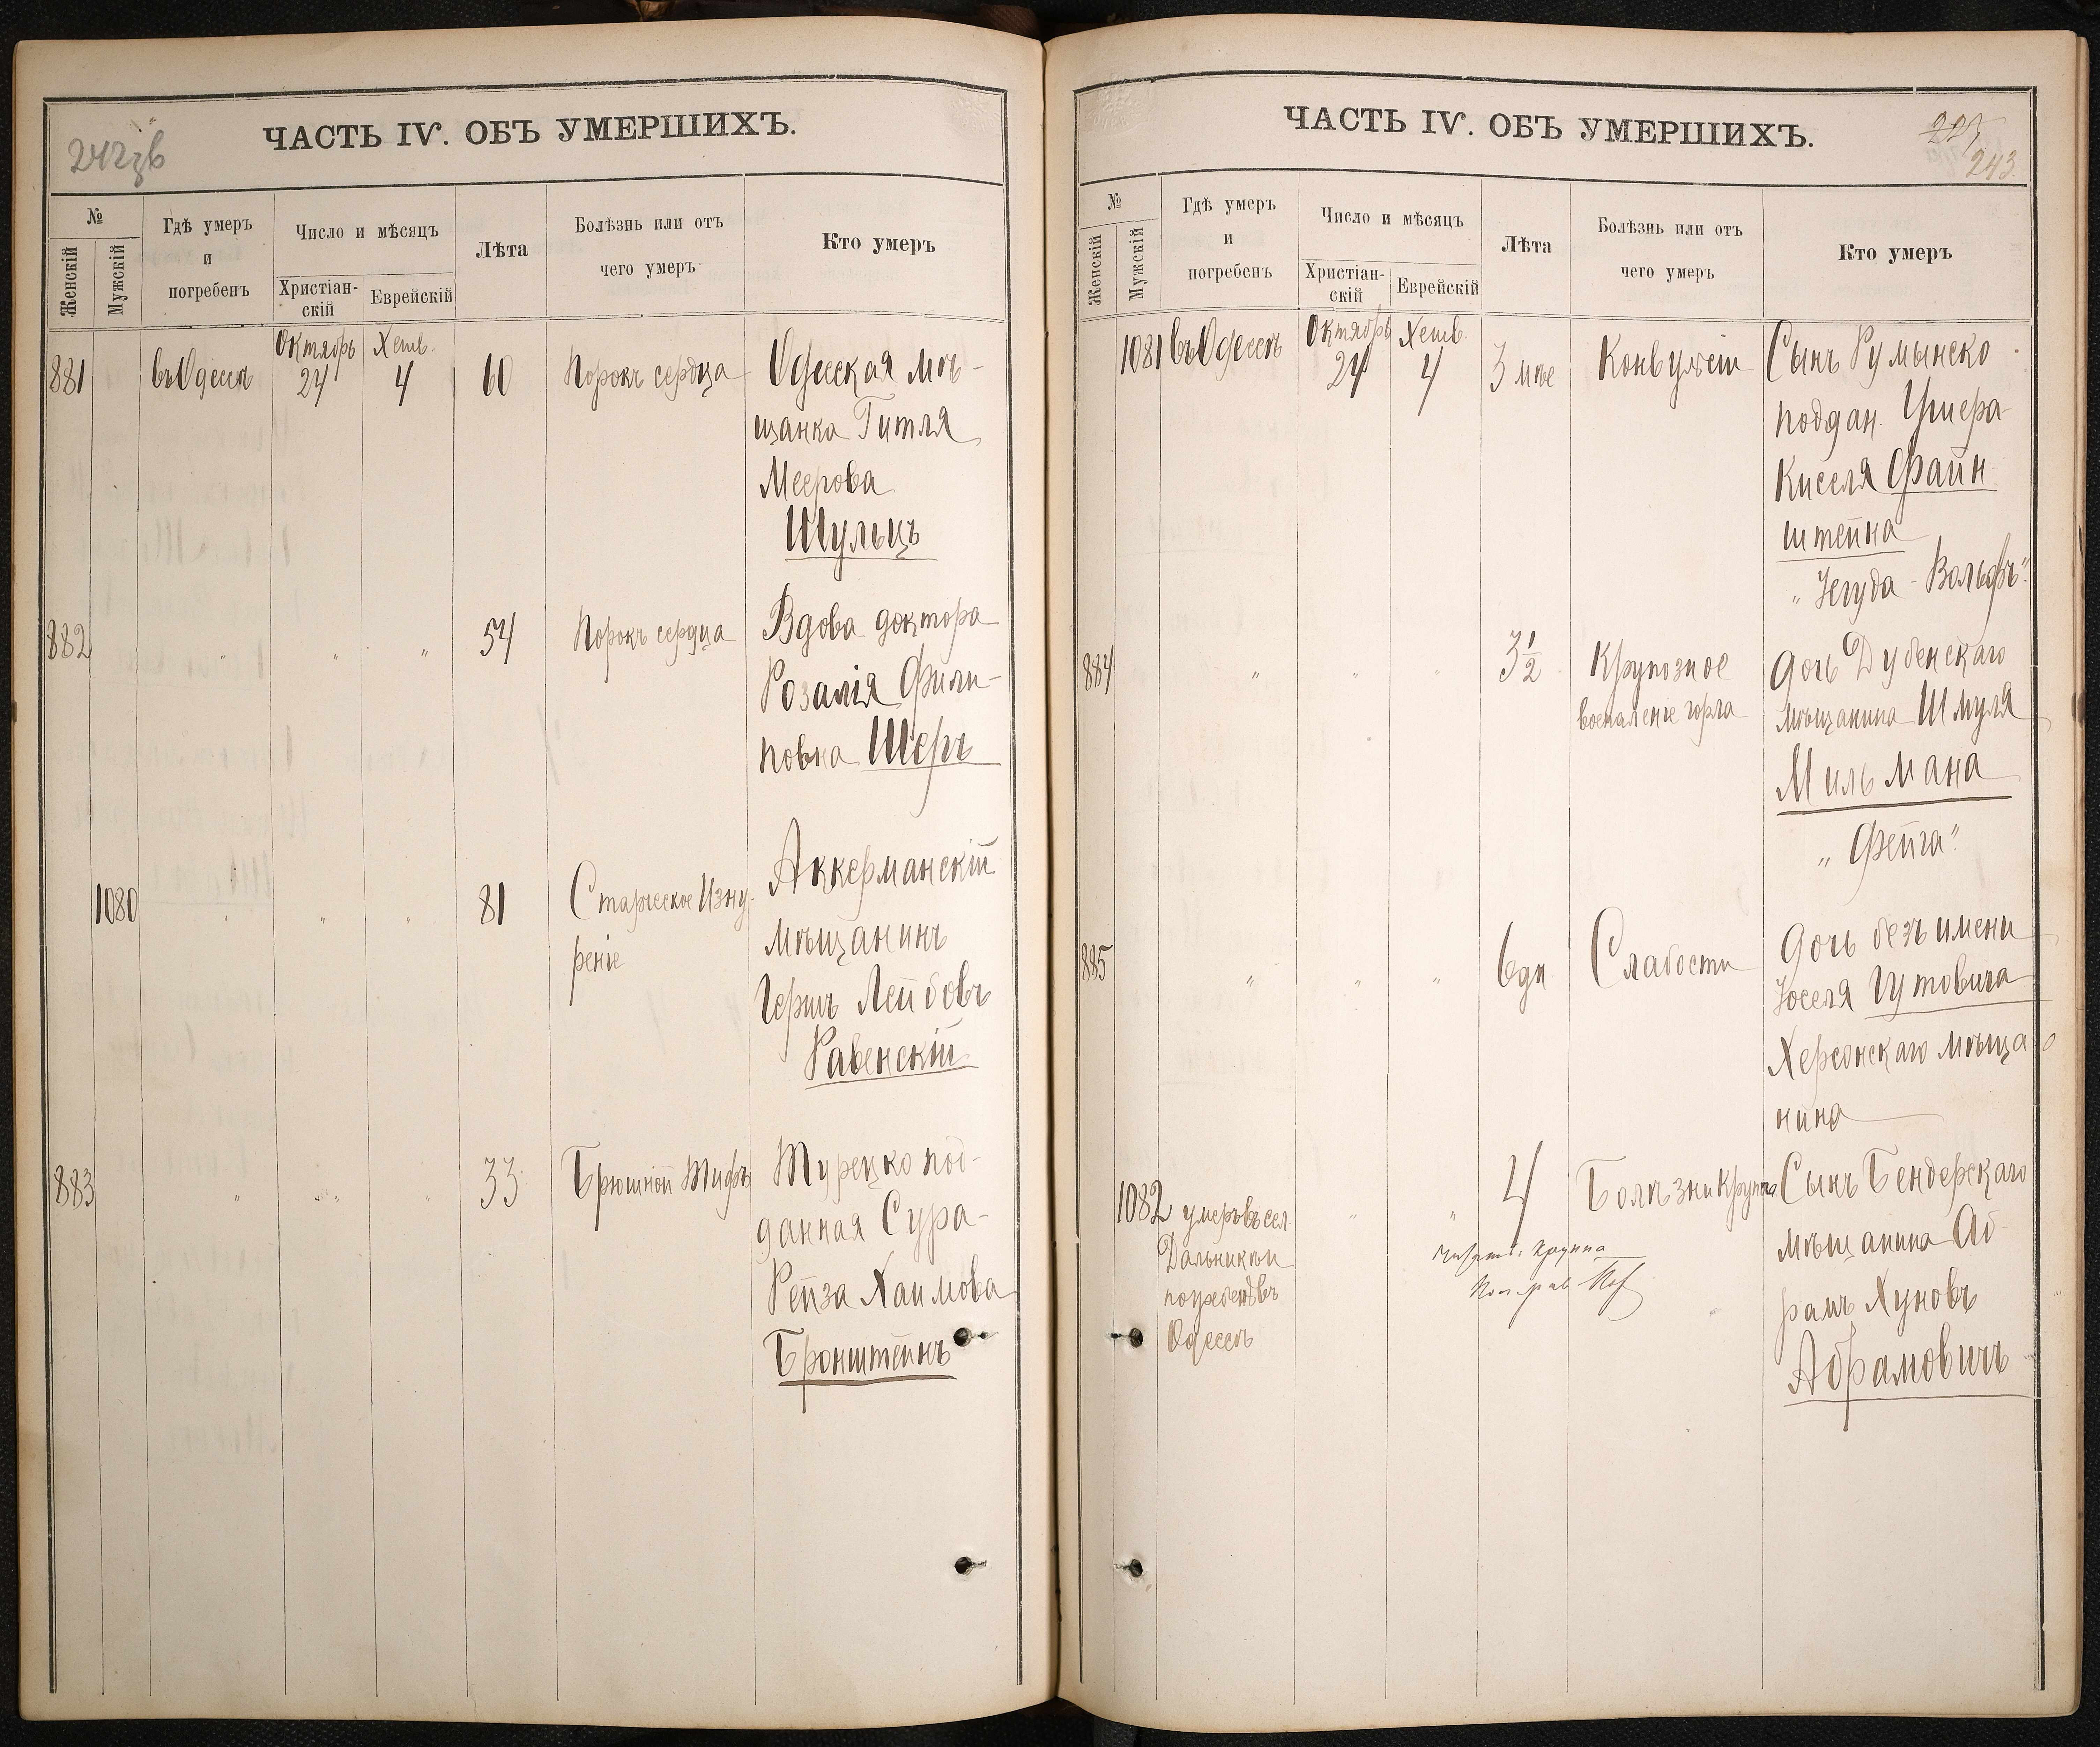 242
ЧАСТЬ IV. ОБЪ УМЕРШИХЪ.
№
Женскій
Мужскій
Гдѣ умеръ
и
погребенъ
Число и мѣсяцъ
Христіан-
скій
Еврейскій
Лѣта
Болѣзнь или отъ
чего умеръ
Кто умеръ
Октябрь Хешв.
881 въ Одессѣ 24 4 60 Порокъ сердца Одесская мѣ-
щанка Гитля
Меерова
Шульцъ
882 " " " 54 Порокъ сердца Вдова доктора
Розалія Фили-
повна Шеръ
1080 " " " 81 Старческое Изну- Аккерманскій
реніе мѣщанинъ
Гершъ Лейбовъ
Равенскій
883 " " " 33 Брюшной Тифъ Турецко под-
данная Сура-
Рейза Хаимова
Бронштейнъ
ЧАСТЬ IV. ОБЪ УМЕРШИХЪ.
243.
№
Женскій
Мужскій
Гдѣ умеръ
и
погребенъ
Число и мѣсяцъ
Христіан-
скій
Еврейскій
Лѣта
Болѣзнь или отъ
чего умеръ
Кто умеръ
Октябрь Хешв.
1081 въ Одессѣ 24 4 3 мѣс Конвульсіи Сынъ Румынско
поддан. Ушера-
Киселя Файн
штейна
"Іегуда-Вольфъ"
884 " " " 3½ Крупозное Дочь Дубенскаго
воспаленіе горла мѣщанина Шмуля
Мильмана
"Фейга"
885 " " " 6 дн Слабости Дочь безъ имени
Іоселя Гутовича
Херсонскаго мѣща
нина
1082 умеръ въ сел. " " 4 Болѣзни Крупа Сынъ Бендерскаго
Дальникѣ мѣщанина Аб-
погребенъ въ рамъ Хуновъ
Одессѣ Абрамовичъ
крупа